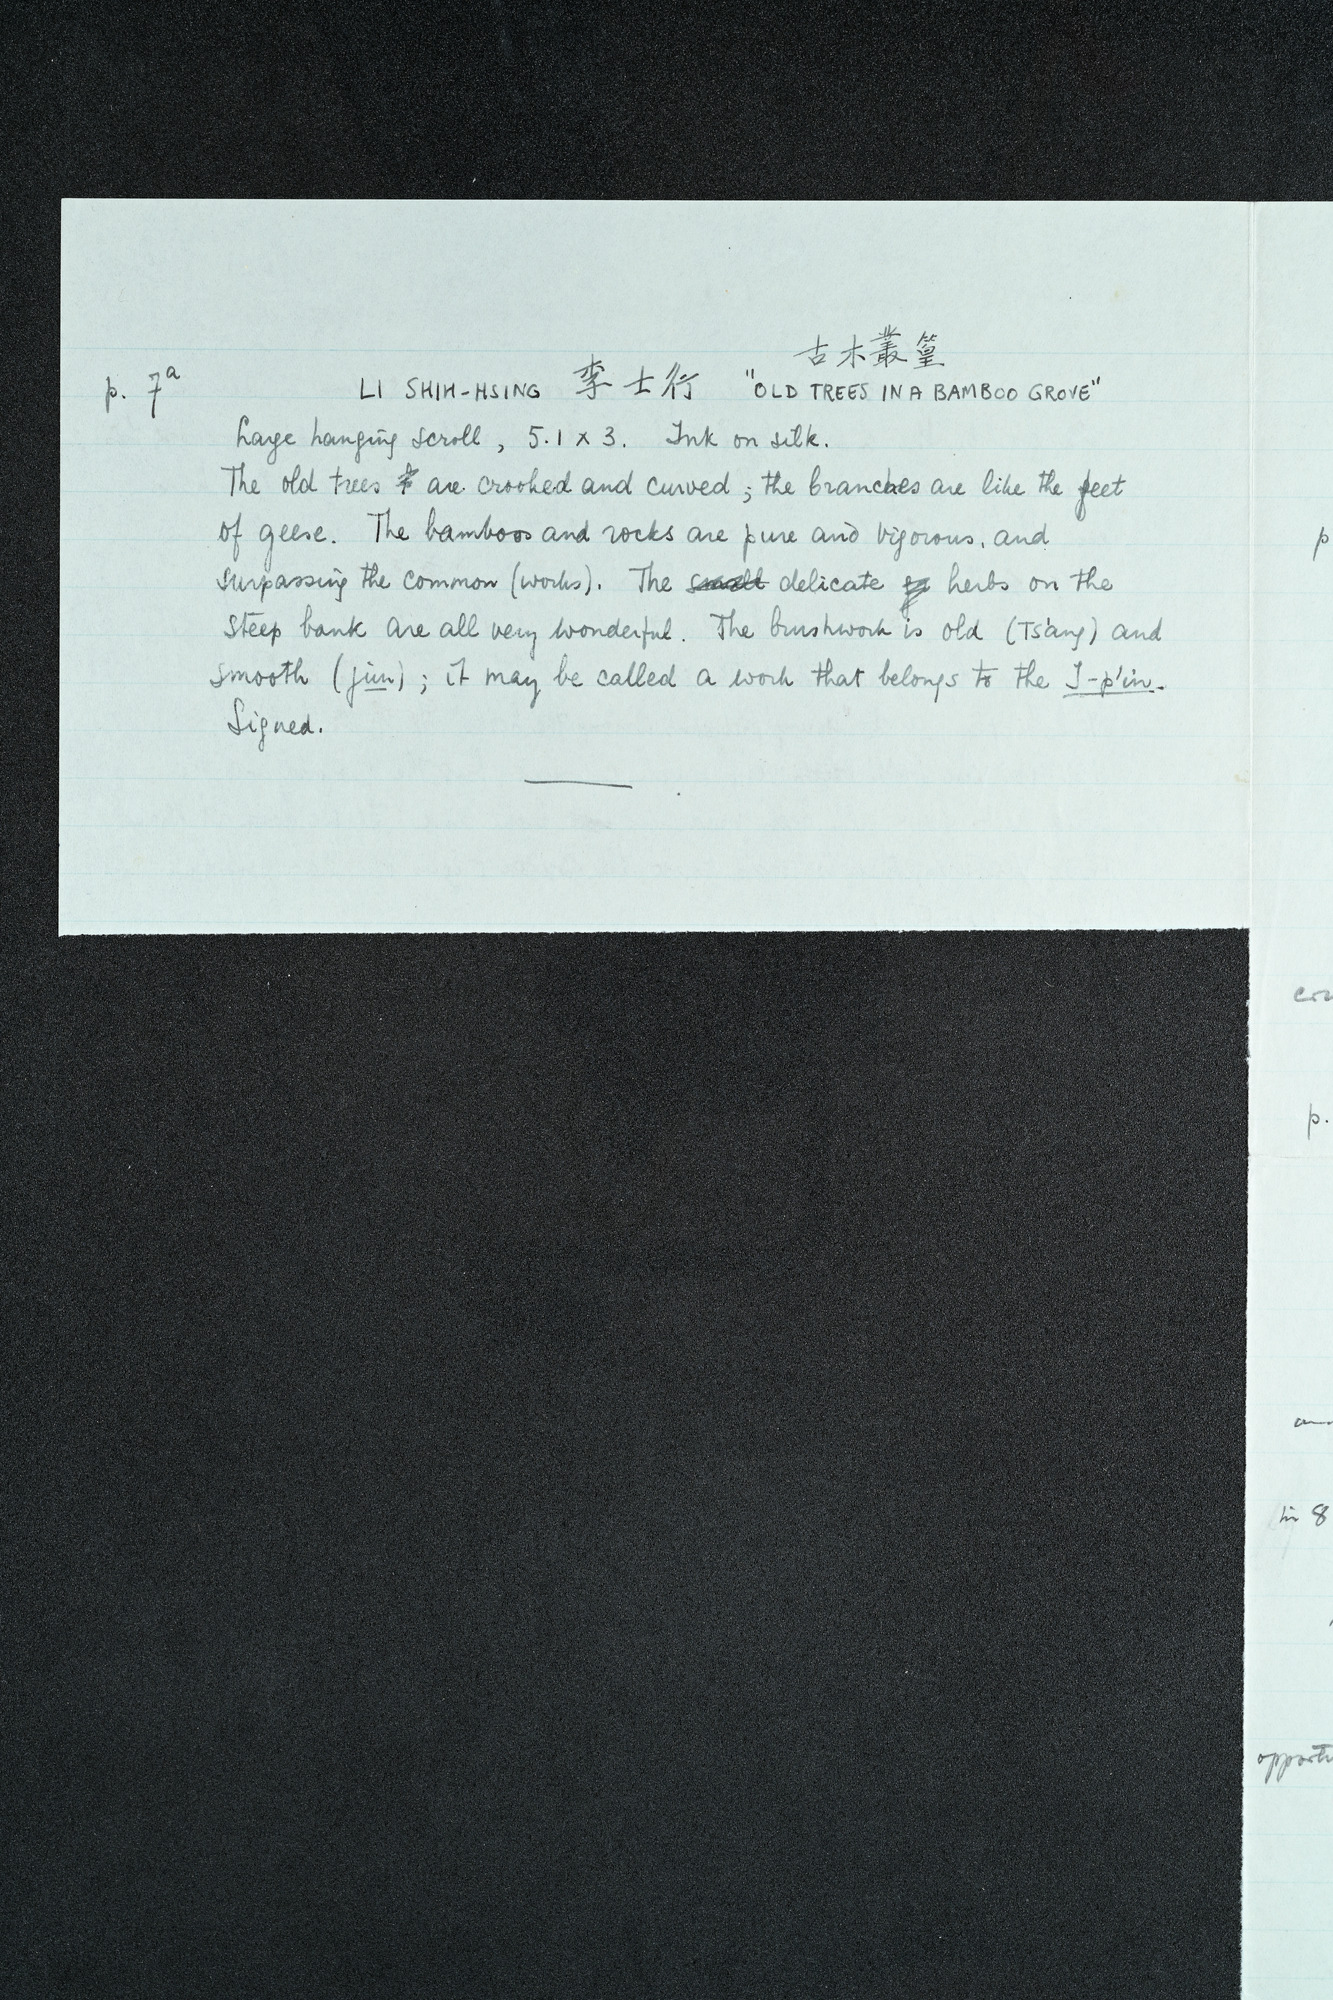 古木叢篁
p. 7a LI SHIH-HSING 李士行 "OLD TREES IN A BAMBOO GROVE"
Large hanging scroll, 5.1 x 3. Ink on silk.
The old trees are crooked and curved; the branches are like the feet
of geese. The bamboos and rocks are pure and vigorous, and
surpassing the common (works). The small delicate herbs on the
steep bank are all very wonderful. The brushwork is old (Ts'ang) and
smooth (jün); it may be called a work that belongs to the I-p'in.
Signed.
p
p.
in 8